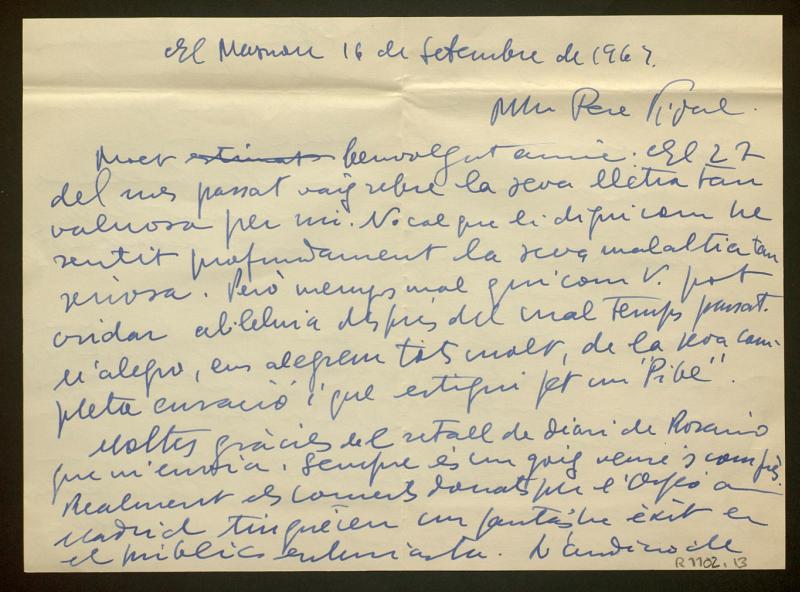 El Masnou 16 de Setembre de 1967.
Pere Vidal.
Molt estimats benvolgut amic. El 27
del mes passat vaig rebre la seva lletra tan
valuosa per mi. No cal que li digui com he
sentit profundament la seva malaltia tan
seriosa. Però menys mal qui com V. pot
cridar al·leluia després del mal temps passat.
M'alegro, ens alegrem tots molt, de la seva com-
pleta curació i que estigui fet un "Pibe".
Moltes gràcies del retall de diari de Rosario
que m'envia. Sempre és un goig veure's
Realment els concerts donats per l'Orfeó a
Madrid tingueren un fantàstic èxit en
el públic entusiasta. L'audició de
R 1102, 13